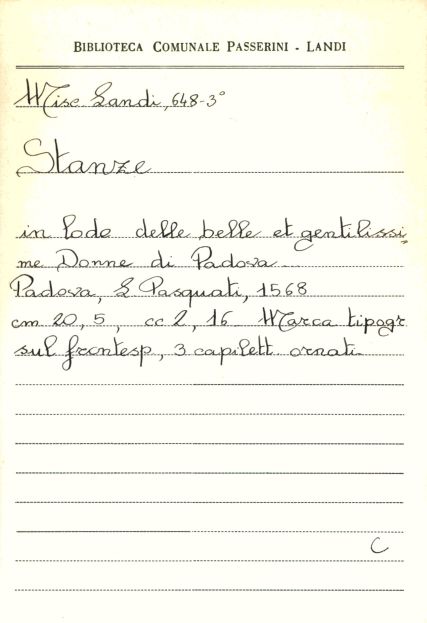 BIBLIOTECA COMUNALE PASSERINI - LANDI
Misc. Landi, 648-3°
Stanze
in lode delle belle et gentilissi-
me Donne di Padova.
Padova, L. Pasquati, 1568
cm 20,5, cc 2, 16. Marca tipogr
sul frontesp, 3 capilett ornati.
C